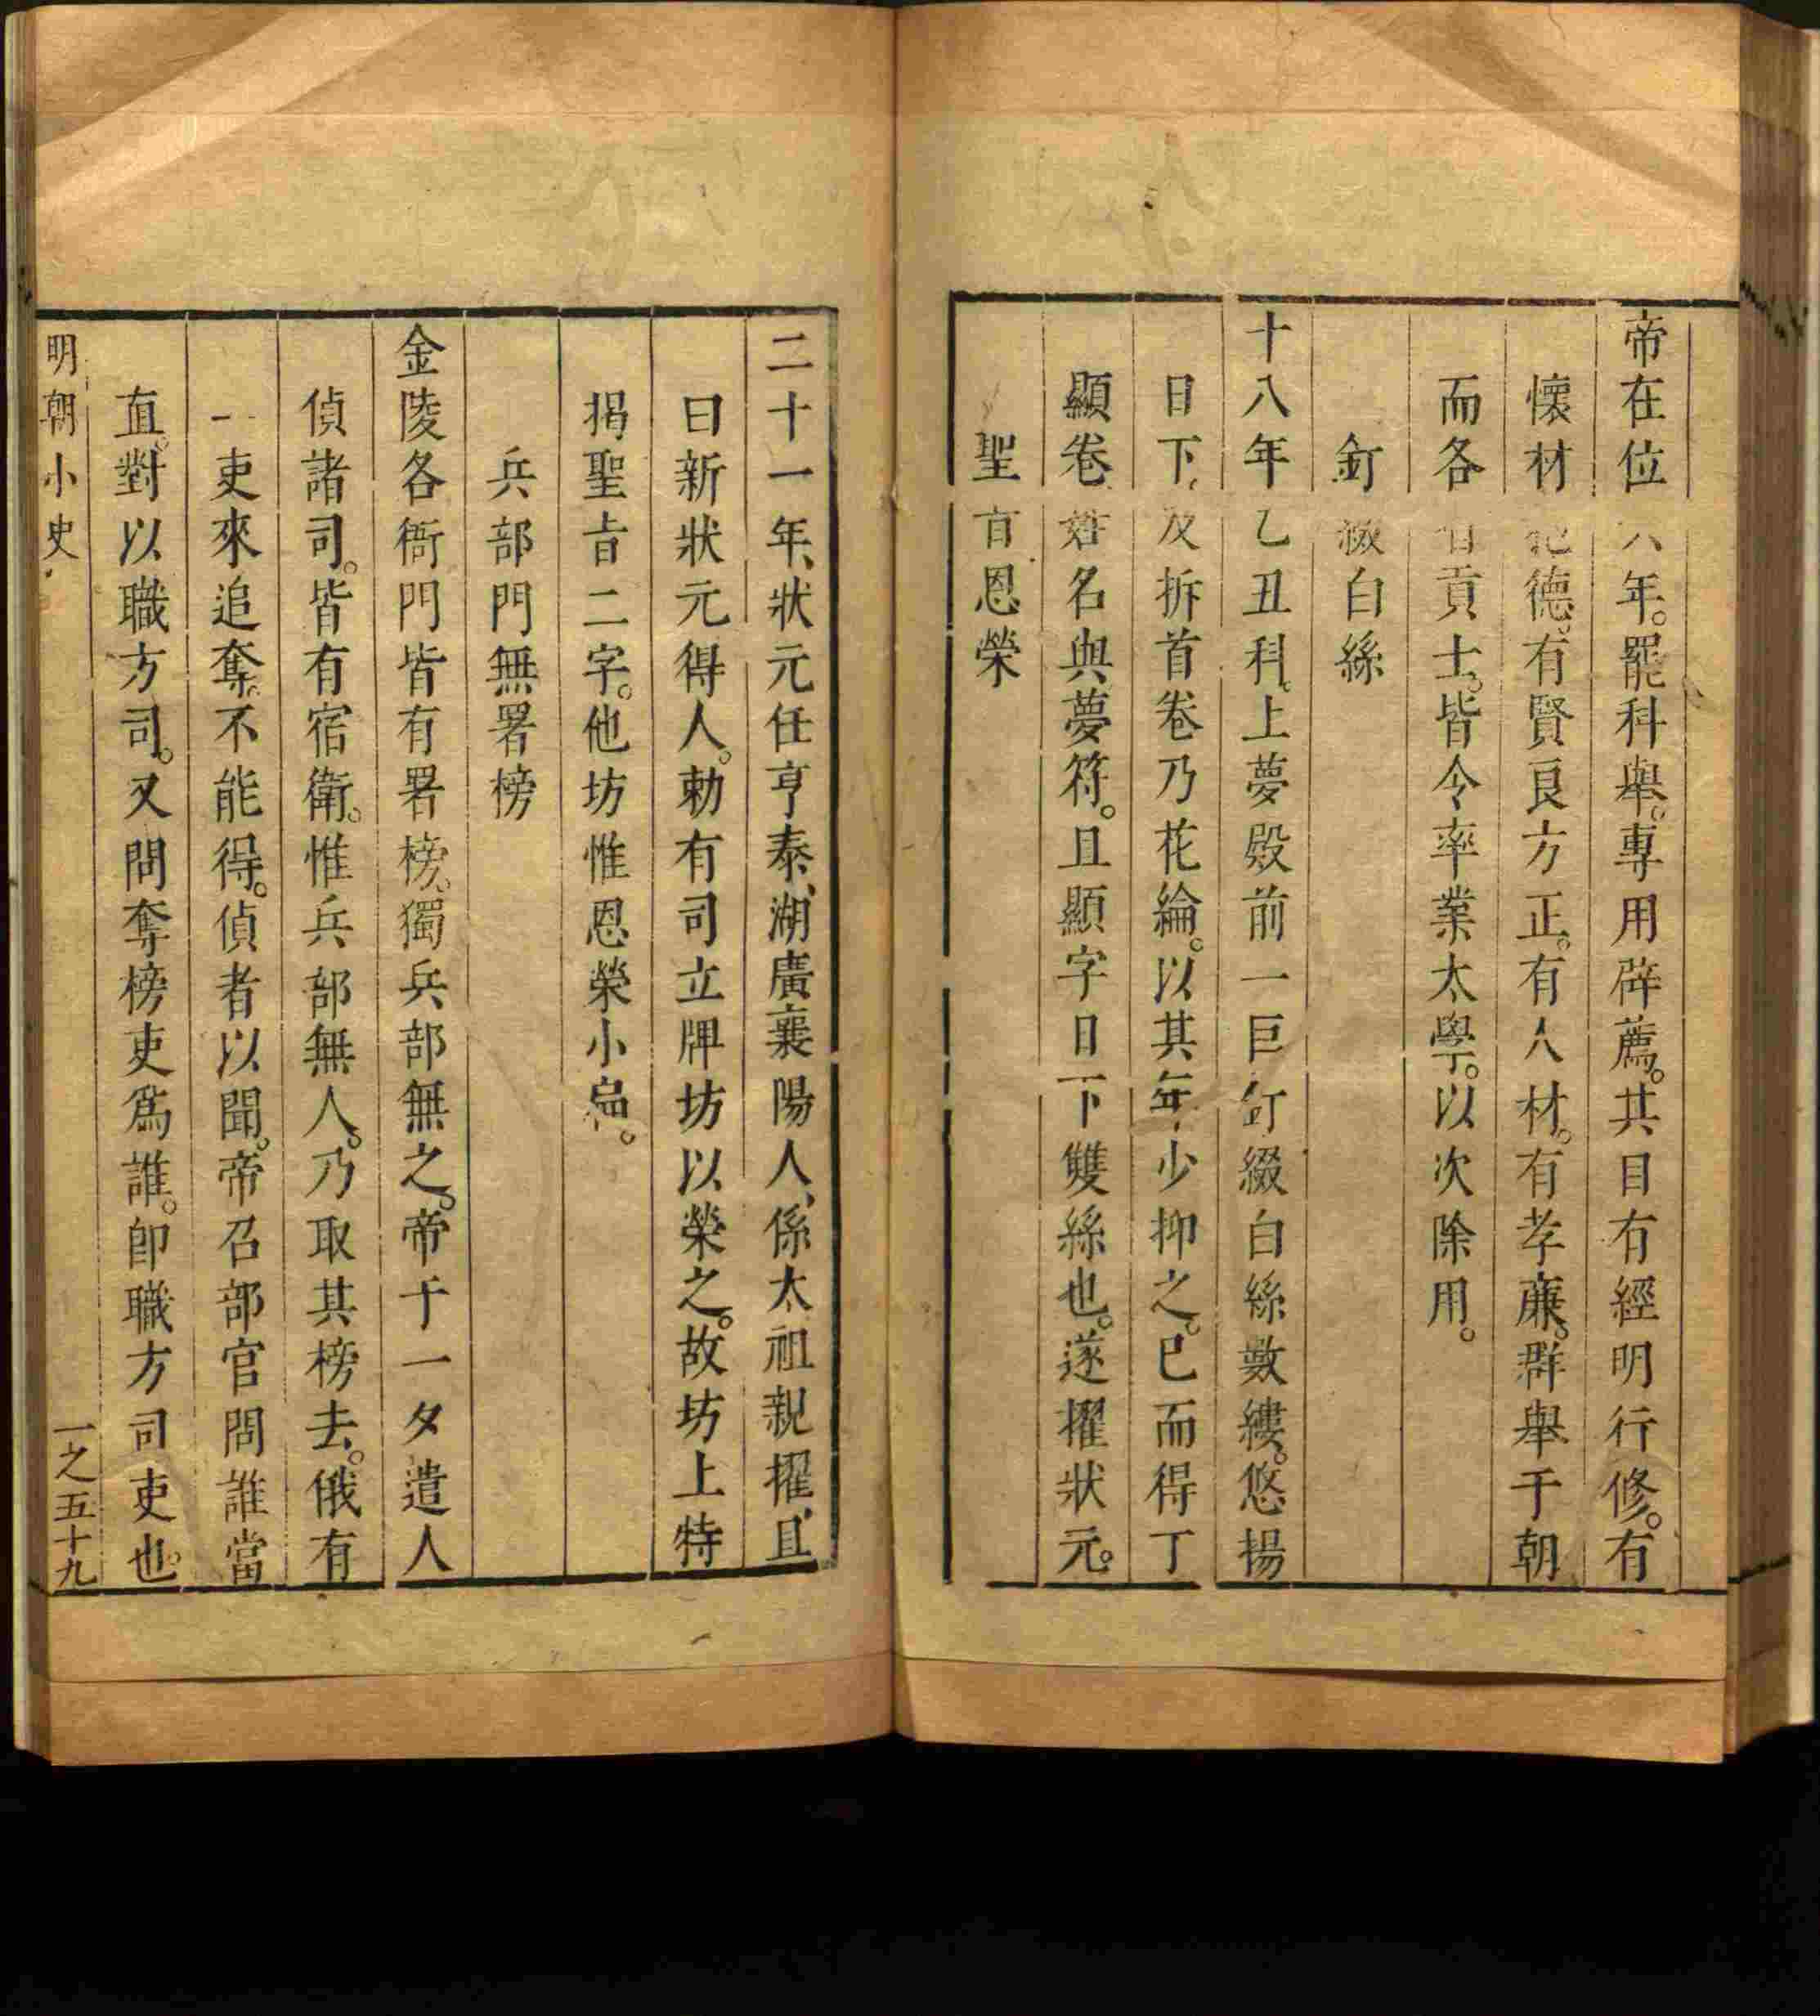 帝在位六年。罷科舉。專用辟薦。其目有經明行修。有
懷材抱德。有賢良方正。有人材。有孝廉。群舉于朝
而各省貢士。皆令率業太學。以次除用。
釘綴白絲
十八年乙丑科。上夢殿前一巨釘綴白絲數縷。悠揚
日下、及拆首卷乃花綸。以其年少抑之。已而得丁
顯卷姓名與夢符。且顯字日下雙絲也。遂擢狀元。
聖旨恩榮
二十一年、狀元任亨泰、湖廣襄陽人、係太祖親擢、且
曰新狀元得人。勅有司立牌坊以榮之。故坊上特
揭聖旨二字。他坊惟恩榮小扁。
兵部門無署榜
金陵各衙門皆有署榜。獨兵部無之。帝于一夕遣人
偵諸司。皆有宿衛。惟兵部無人。乃取其榜去。俄有
一吏來追奪。不能得。偵者以聞。帝召部官問誰當
直。對以職方司。又問奪榜吏爲誰。卽職方司吏也。
明朝小史
一之五十九